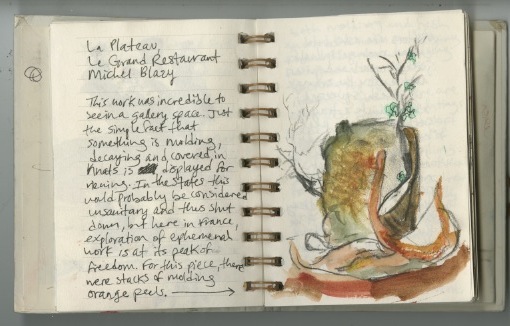 La Plateau,
Le Grand Restaurant
Michel Blazy
This work was incredible to
see in a gallery space. Just
the simple fact that
something is molding,
decaying and covered in
knats is displayed for
vening. In the States this
would probably be considered
unsanitary and thus shut
down, but here in France,
exploration of ephemeral
work is at its peak of
freedom. For this piece, there
were stacks of molding
orange peels.